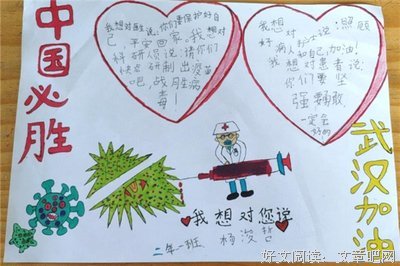 中国必胜
我想对医生说:你们要保护好自
己,平安回家,我想对
科研人员说:请你们
快点研制出疫苗
吧,战胜病
毒!
我想对护士说:照顾
好病人和自己,加油!
我想对患者说:
你们要坚
强勇敢
一定会
好的
武汉加油
我想对您说
二年一班 杨浚哲
好文阅读: 文章吧网